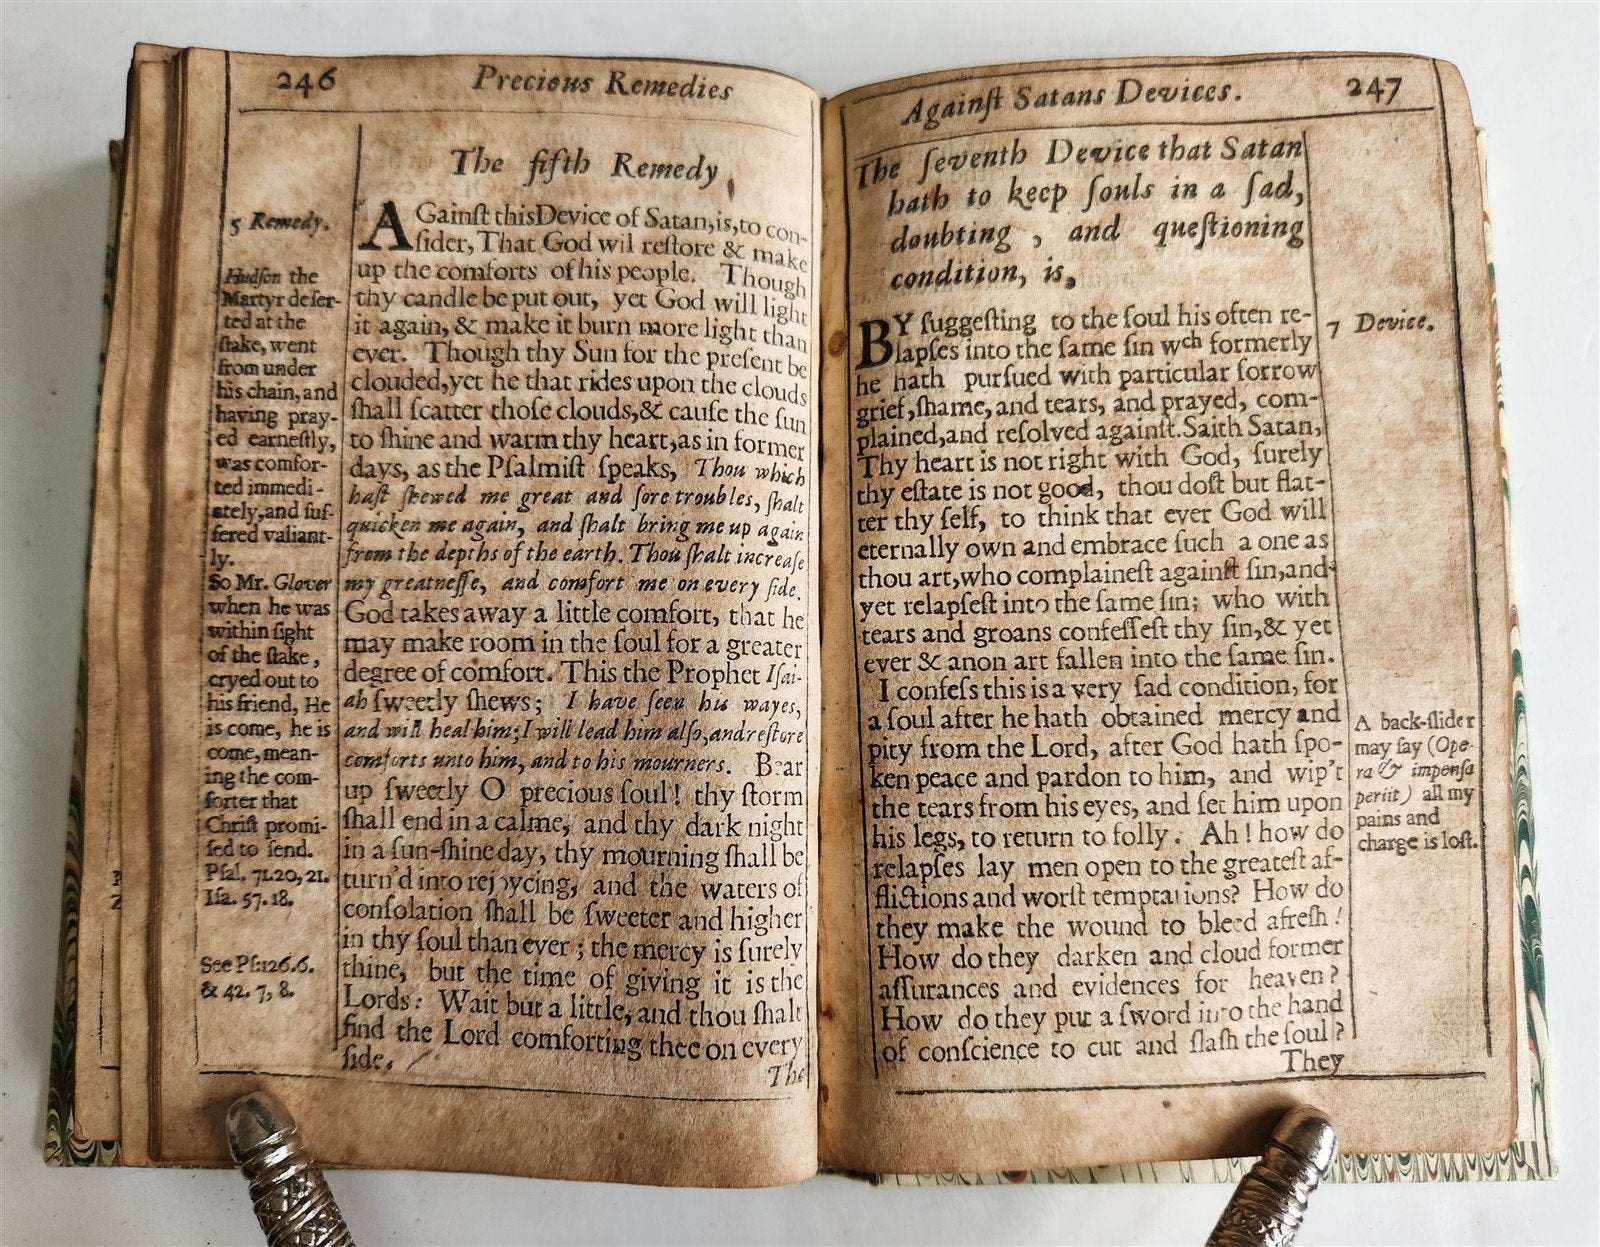 246 Precious Remedies
The fifth Remedy
5 Remedy.
Hudſon the
Martyr deſer-
ted at the
ſtake, went
from under
his chain, and
having pray-
ed earneſtly,
was comfor-
ted immedi-
ately, and ſuf-
fered valiant-
ly.
So Mr. Glover
when he was
within ſight
of the ſtake,
cryed out to
his friend, He
is come, he is
come, mean-
ing the com-
forter that
Chriſt promi-
ſed to ſend.
Pſal. 71.20, 21.
Iſa. 57.18.
See Pſ:126.6.
& 42. 7, 8.
AGainſt this Device of Satan, is, to con-
ſider, That God wil reſtore & make
up the comforts of his people. Though
thy candle be put out, yet God will light
it again, & make it burn more light than
ever. Though thy Sun for the preſent be
clouded, yet he that rides upon the clouds
ſhall ſcatter thoſe clouds, & cauſe the ſun
to ſhine and warm thy heart, as in former
days, as the Pſalmiſt ſpeaks, Thou which
haſt ſhewed me great and ſore troubles, ſhalt
quicken me again, and ſhalt bring me up again
from the depths of the earth. Thou ſhalt increaſe
my greatneſſe, and comfort me on every ſide.
God takes away a little comfort, that he
may make room in the ſoul for a greater
degree of comfort. This the Prophet Iſai-
ah ſweetly ſhews; I have ſeen his wayes,
and will heal him; I will lead him alſo, and reſtore
comforts unto him, and to his mourners. Bear
up ſweetly O precious ſoul! thy ſtorm
ſhall end in a calme, and thy dark night
in a ſun-ſhine day, thy mourning ſhall be
turn'd into rejoycing, and the waters of
conſolation ſhall be ſweeter and higher
in thy ſoul than ever; the mercy is ſurely
thine, but the time of giving it is the
Lords: Wait but a little, and thou ſhalt
find the Lord comforting thee on every
ſide.
The
Againſt Satans Devices. 247
The ſeventh Device that Satan
hath to keep ſouls in a ſad,
doubting, and queſtioning
condition, is,
BY ſuggeſting to the ſoul his often re-
lapſes into the ſame ſin wch formerly
he hath purſued with particular ſorrow
grief, ſhame, and tears, and prayed, com-
plained, and reſolved againſt. Saith Satan,
Thy heart is not right with God, ſurely
thy eſtate is not good, thou doſt but flat-
ter thy ſelf, to think that ever God will
eternally own and embrace ſuch a one as
thou art, who complaineſt againſt ſin, and
yet relapſeſt into the ſame ſin; who with
tears and groans confeſſeſt thy ſin, & yet
ever & anon art fallen into the ſame ſin.
I confeſs this is a very ſad condition, for
a ſoul after he hath obtained mercy and
pity from the Lord, after God hath ſpo-
ken peace and pardon to him, and wip't
the tears from his eyes, and ſet him upon
his legs, to return to folly. Ah! how do
relapſes lay men open to the greateſt af-
flictions and worſt temptations? How do
they make the wound to bleed afreſh!
How do they darken and cloud former
aſſurances and evidences for heaven?
How do they put a ſword into the hand
of conſcience to cut and ſlaſh the ſoul?
They
7 Device.
A back-ſlider
may ſay (Ope-
ra & impenſa
periit) all my
pains and
charge is loſt.